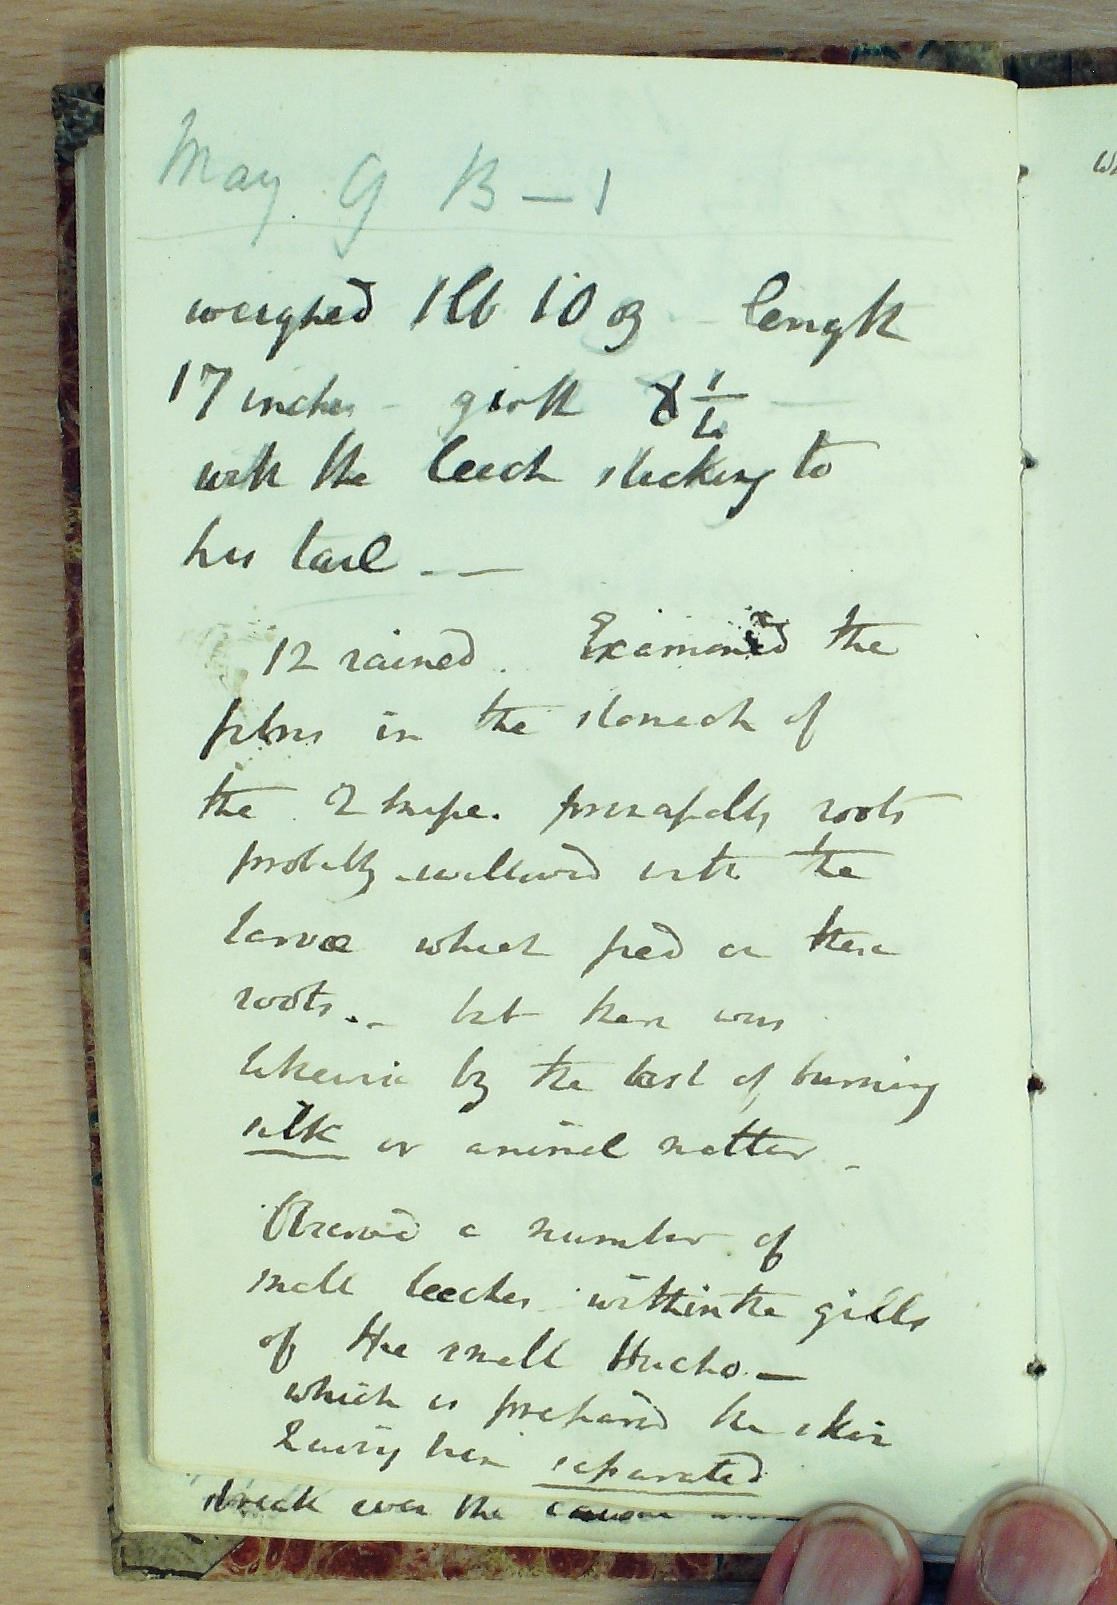 May 9 B - 1
weighed 1lb 10 oz - length
17 inches - girth 8 1/4 -
with the leech sticking to
his tail - -
12 rained. Examined the
fibres in the stomach of
the 2 snipe. principally roots
probably swallowed with the
larvae which feed on these
roots. - but there was
likewise by the test of burning
silk or animal matter -
Observed a number of
small leeches within the gills
of the small Hucho. -
which is prepared the skin
having been separated
streak over the
w